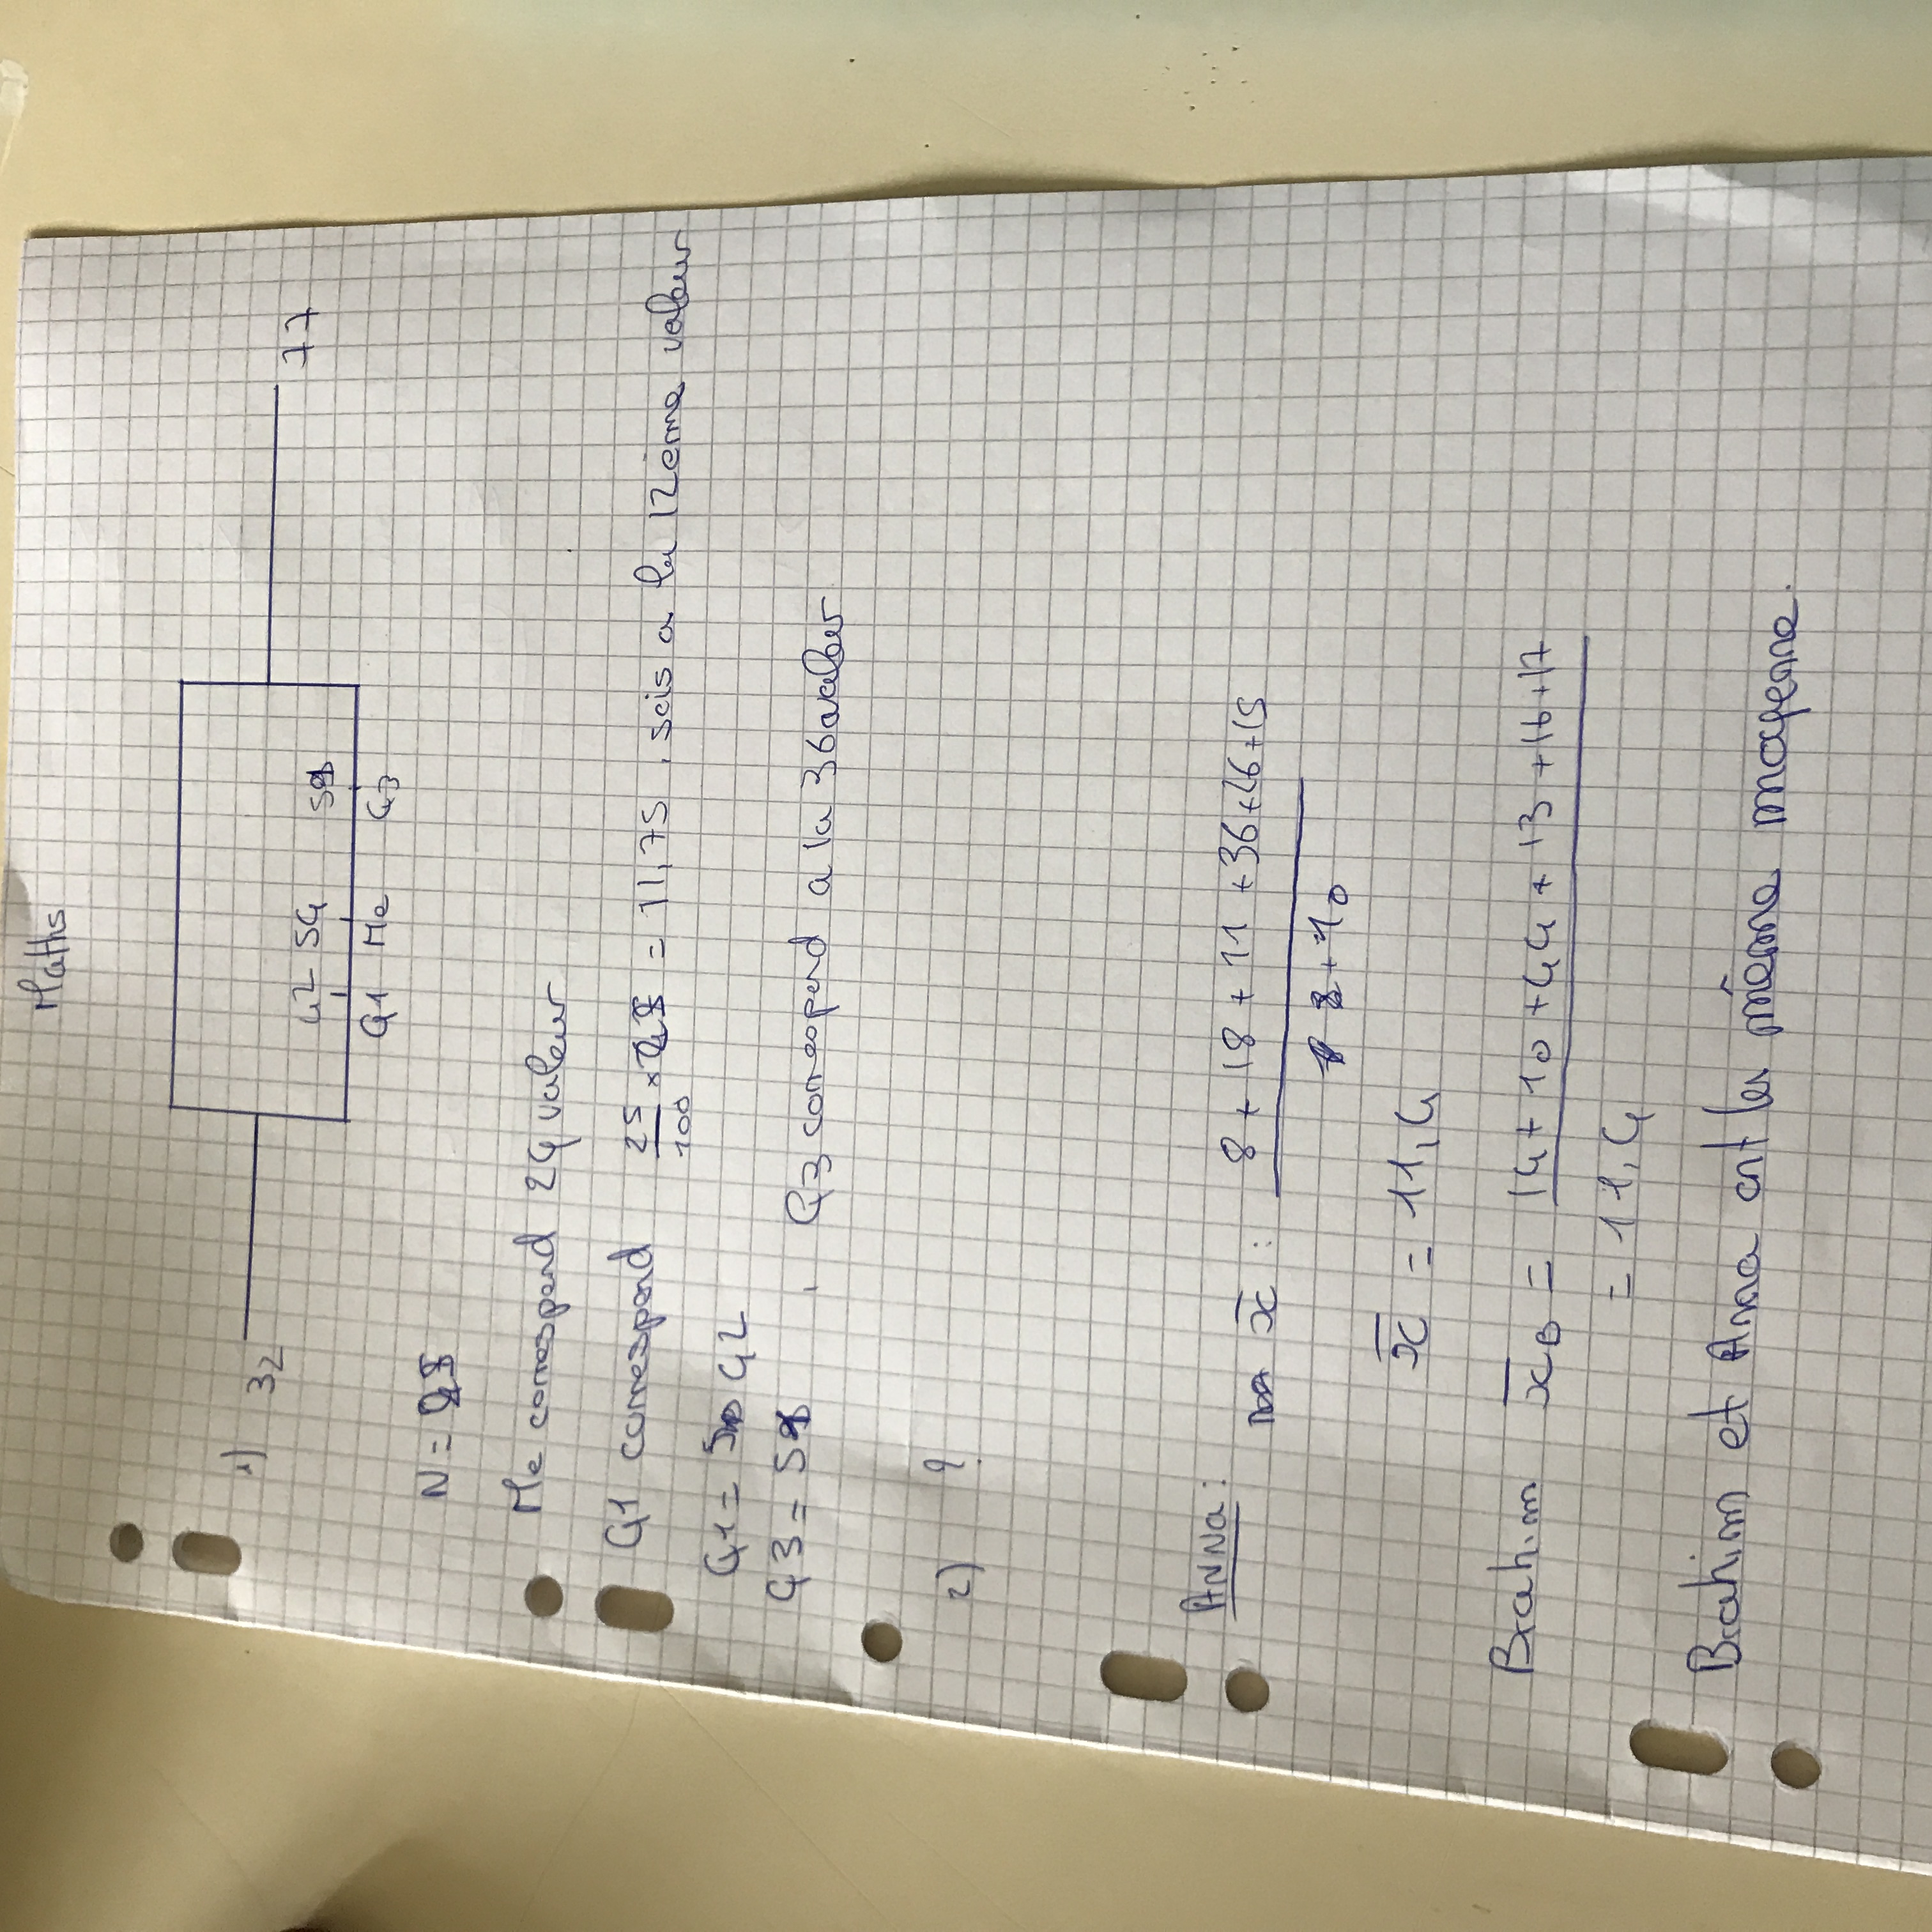 Maths
1) 32
77
42 54
Q1 Me Q3
N =
Me correspond 24 valeur
Q1 correspond 25/100 × = 11,75, sois a la 12ème valeur
Q1 = 42
Q3 = , Q3 correspond a la 36 valeur
2) ?
Anna :
x̄ : 8 + 18 + 11 + 36 + 26 + 15
+ 10
x̄ = 11,4
Brahim x̄B = 14 + 10 + 44 + 13 + 16 + 17
= 11,4
Brahim et Anna ont la même moyenne.